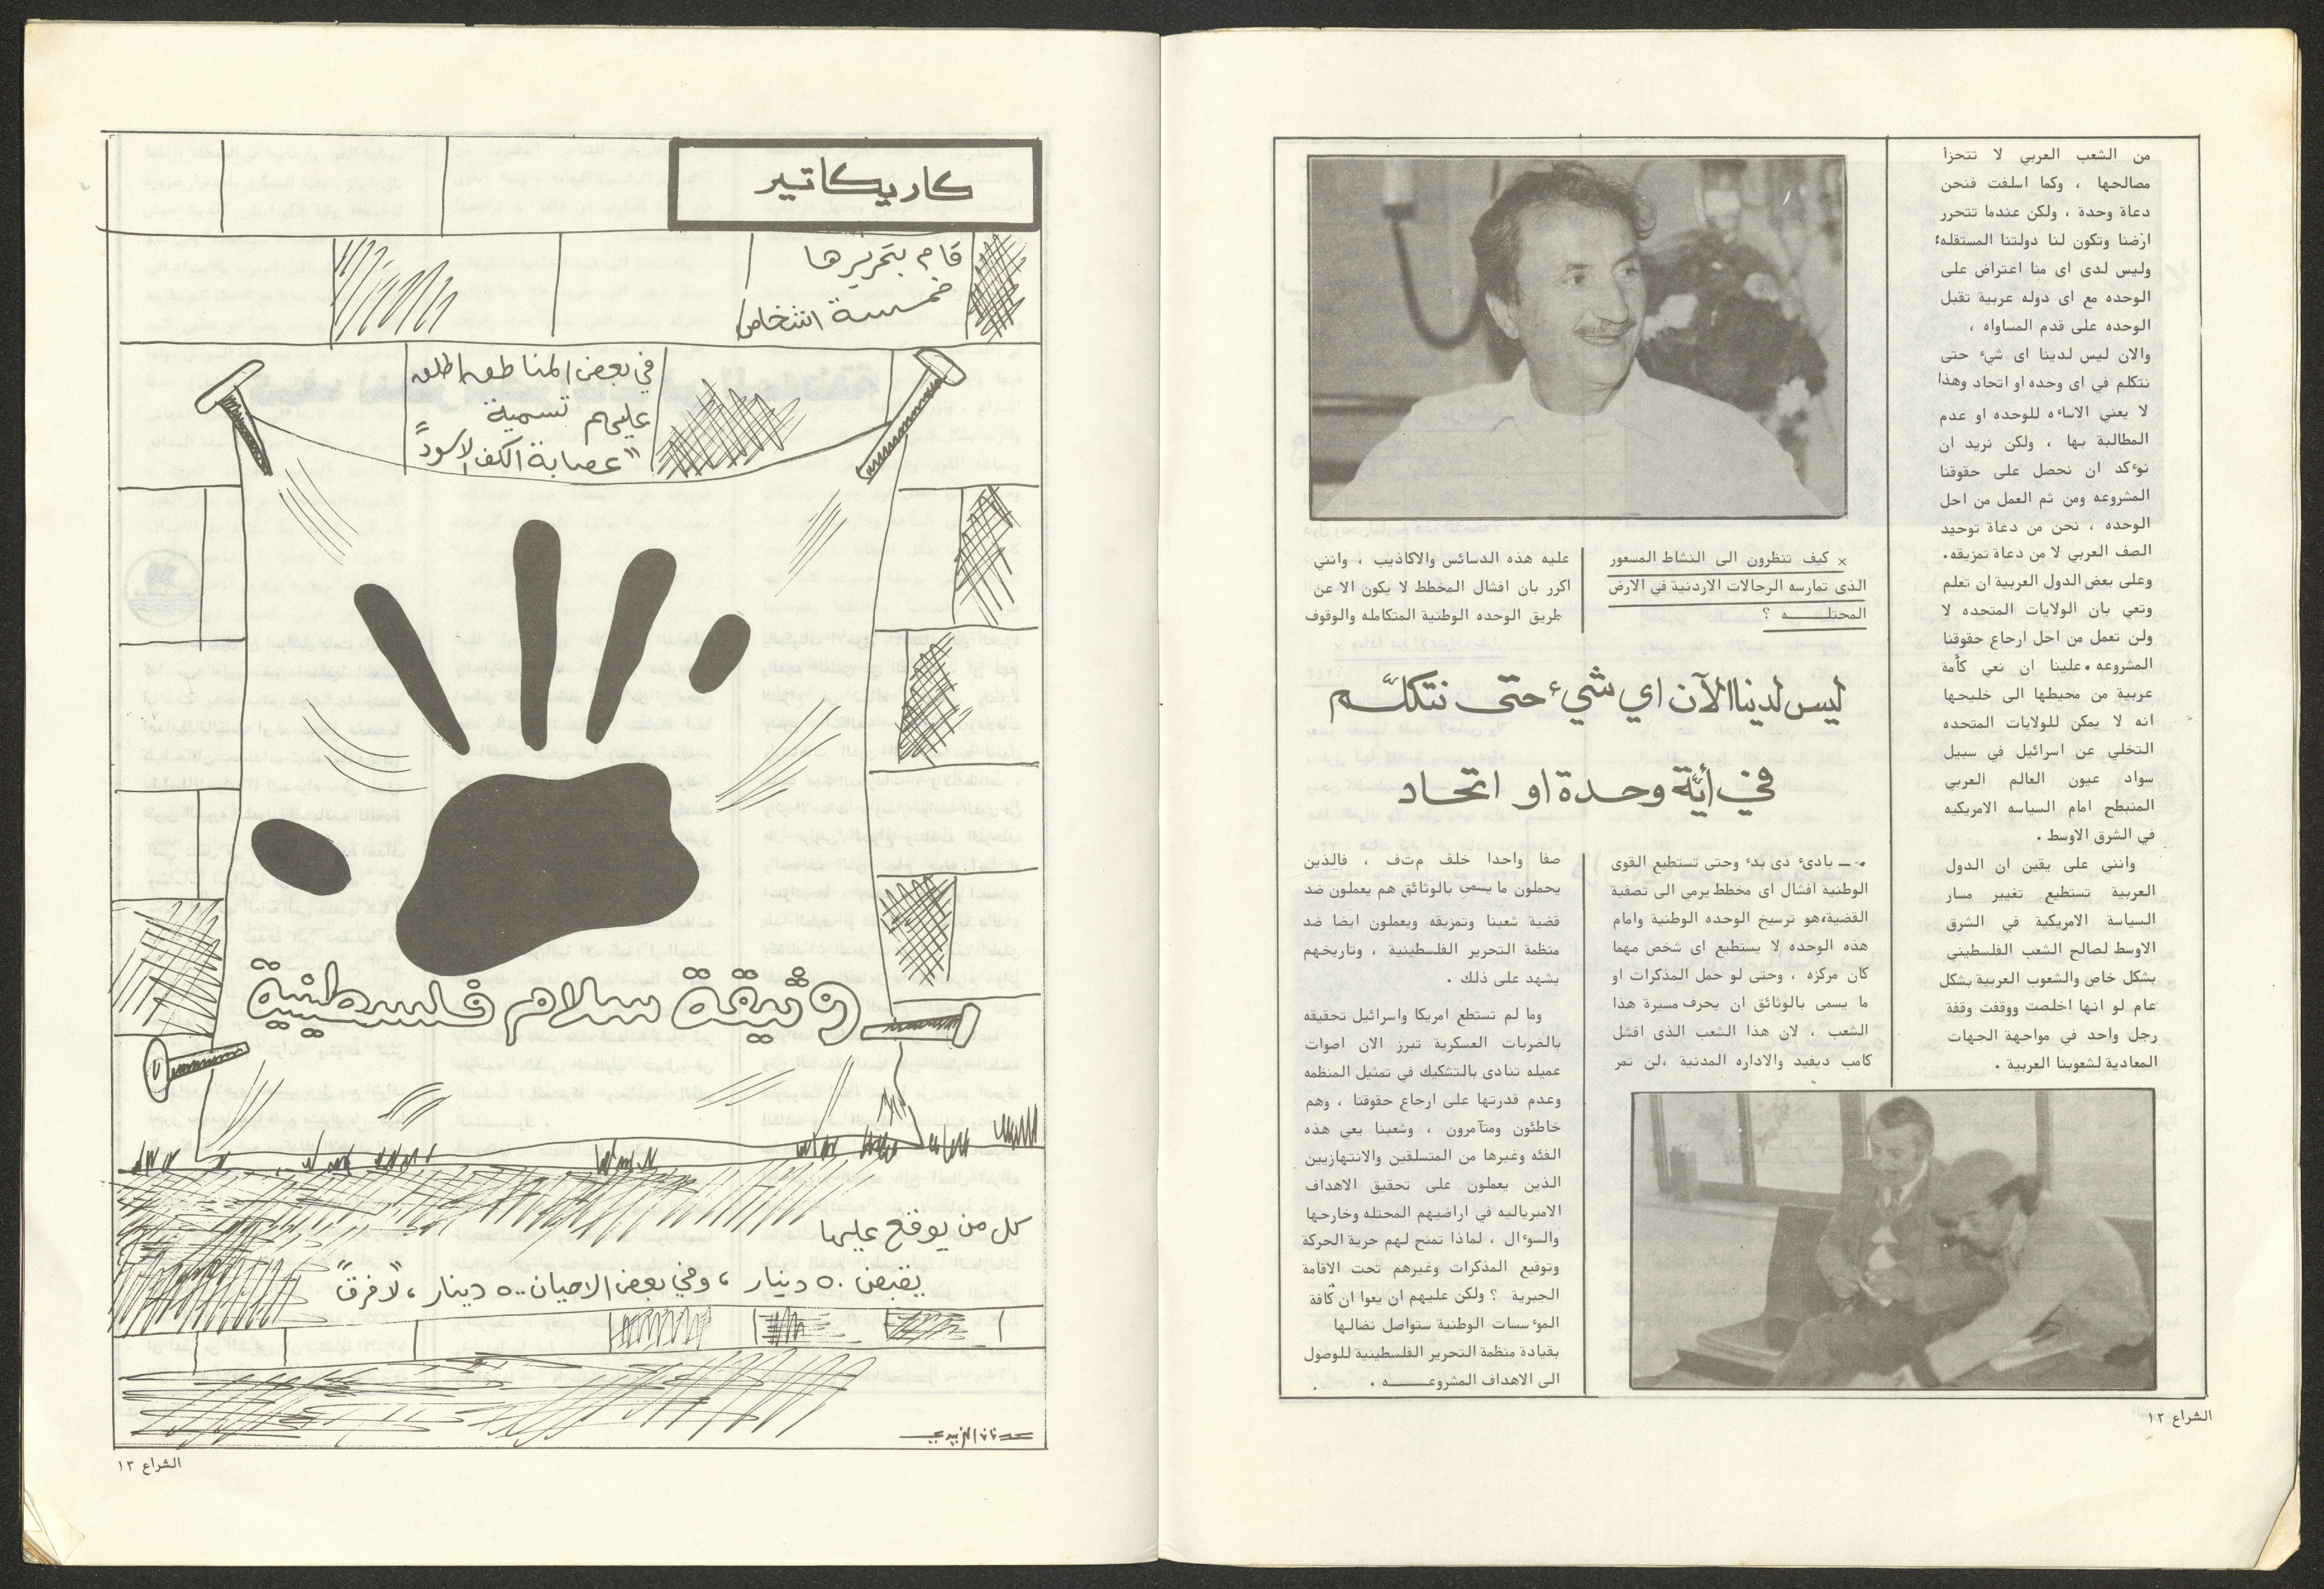 من الشعب العربي لا تتجزأ
مصالحها ، وكما اسلفت فنحن
دعاة وحدة ، ولكن عندما تتحرر
ارضنا وتكون لنا دولتنا المستقله؛
وليس لدى اى منا اعتراض على
الوحده مع اى دوله عربية تقبل
الوحده على قدم المساواه ،
والان ليس لدينا اى شيء حتى
نتكلم في اى وحده او اتحاد وهذا
لا يعني الاساءه للوحده او عدم
المطالبة بها ، ولكن نريد ان
نوءكد ان نحصل على حقوقنا
المشروعه ومن ثم العمل من اجل
الوحده ، نحن من دعاة توحيد
الصف العربي لا من دعاة تمزيقه.
وعلى بعض الدول العربية ان تعلم
وتعي بان الولايات المتحده لا
ولن تعمل من اجل ارجاع حقوقنا
المشروعه .علينا ان نعي كأمة
عربية من محيطها الى خليجها
انه لا يمكن للولايات المتحده
التخلي عن اسرائيل في سبيل
سواد عيون العالم العربي
المنبطح امام السياسه الامريكيه
في الشرق الاوسط .
وانني على يقين ان الدول
العربية تستطيع تغيير مسار
السياسة الامريكية في الشرق
الاوسط لصالح الشعب الفلسطيني
بشكل خاص والشعوب العربية بشكل
عام لو انها اخلصت ووقفت وقفة
رجل واحد في مواجهة الجهات
المعادية لشعوبنا العربية .
× كيف تنظرون الى النشاط المسعور
الذى تمارسه الرجالات الاردنية في الارض
المحتلـــه ؟
ليس لدينا الآن اي شيء حتى نتكلّـم
في أيّة وحـدة او اتحـاد
.- ــ بادئ ذى بدء وحتى تستطيع القوى
الوطنية افشال اى مخطط يرمي الى تصفية
القضية،هو ترسيخ الوحده الوطنية وامام
هذه الوحده لا يستطيع اى شخص مهما
كان مركزه ، وحتى لو حمل المذكرات او
ما يسمى بالوثائق ان يحرف مسيرة هذا
الشعب ، لان هذا الشعب الذى افشل
كامب ديفيد والاداره المدنية ،لن تمر
عليه هذه الدسائس والاكاذيب ، وانني
اكرر بان افشال المخطط لا يكون الا عن
طريق الوحده الوطنية المتكامله والوقوف
صفا واحدا خلف م.ت.ف ، فالذين
يحملون ما يسمى بالوثائق هم يعملون ضد
قضية شعبنا وتمزيقه ويعملون ايضا ضد
منظمة التحرير الفلسطينية ، وتاريخهم
يشهد على ذلك .
وما لم تستطع امريكا واسرائيل تحقيقه
بالضربات العسكرية تبرز الان اصوات
عميله تنادى بالتشكيك في تمثيل المنظمه
وعدم قدرتها على ارجاع حقوقنا ، وهم
خاطئون ومتآمرون ، وشعبنا يعي هذه
الفئه وغيرها من المتسلقين والانتهازيين
الذين يعملون على تحقيق الاهداف
الامبرياليه في اراضيهم المحتله وخارجها
والسوءال ، لماذا تمنح لهم حرية الحركة
وتوقيع المذكرات وغيرهم تحت الاقامة
الجبرية ؟ ولكن عليهم ان يعوا ان كافة
الموءسسات الوطنية ستواصل نضالها
بقيادة منظمة التحرير الفلسطينية للوصول
الى الاهداف المشروعـــه .
الشراع ١٢
كاريكاتير
قام بتحريرها
خمسة اشخاص
في بعض المناطق اطلق
عليهم تسمية
"عصابة الكف الاسود"
وثيقة سلام فلسطينية
كل من يوقع عليها
يقبض ٥٠ دينار ، وفي بعض الاحيان ٥٠٠ دينار ، "لا فرق"
عدنان الزبيدي
الشراع ١٣